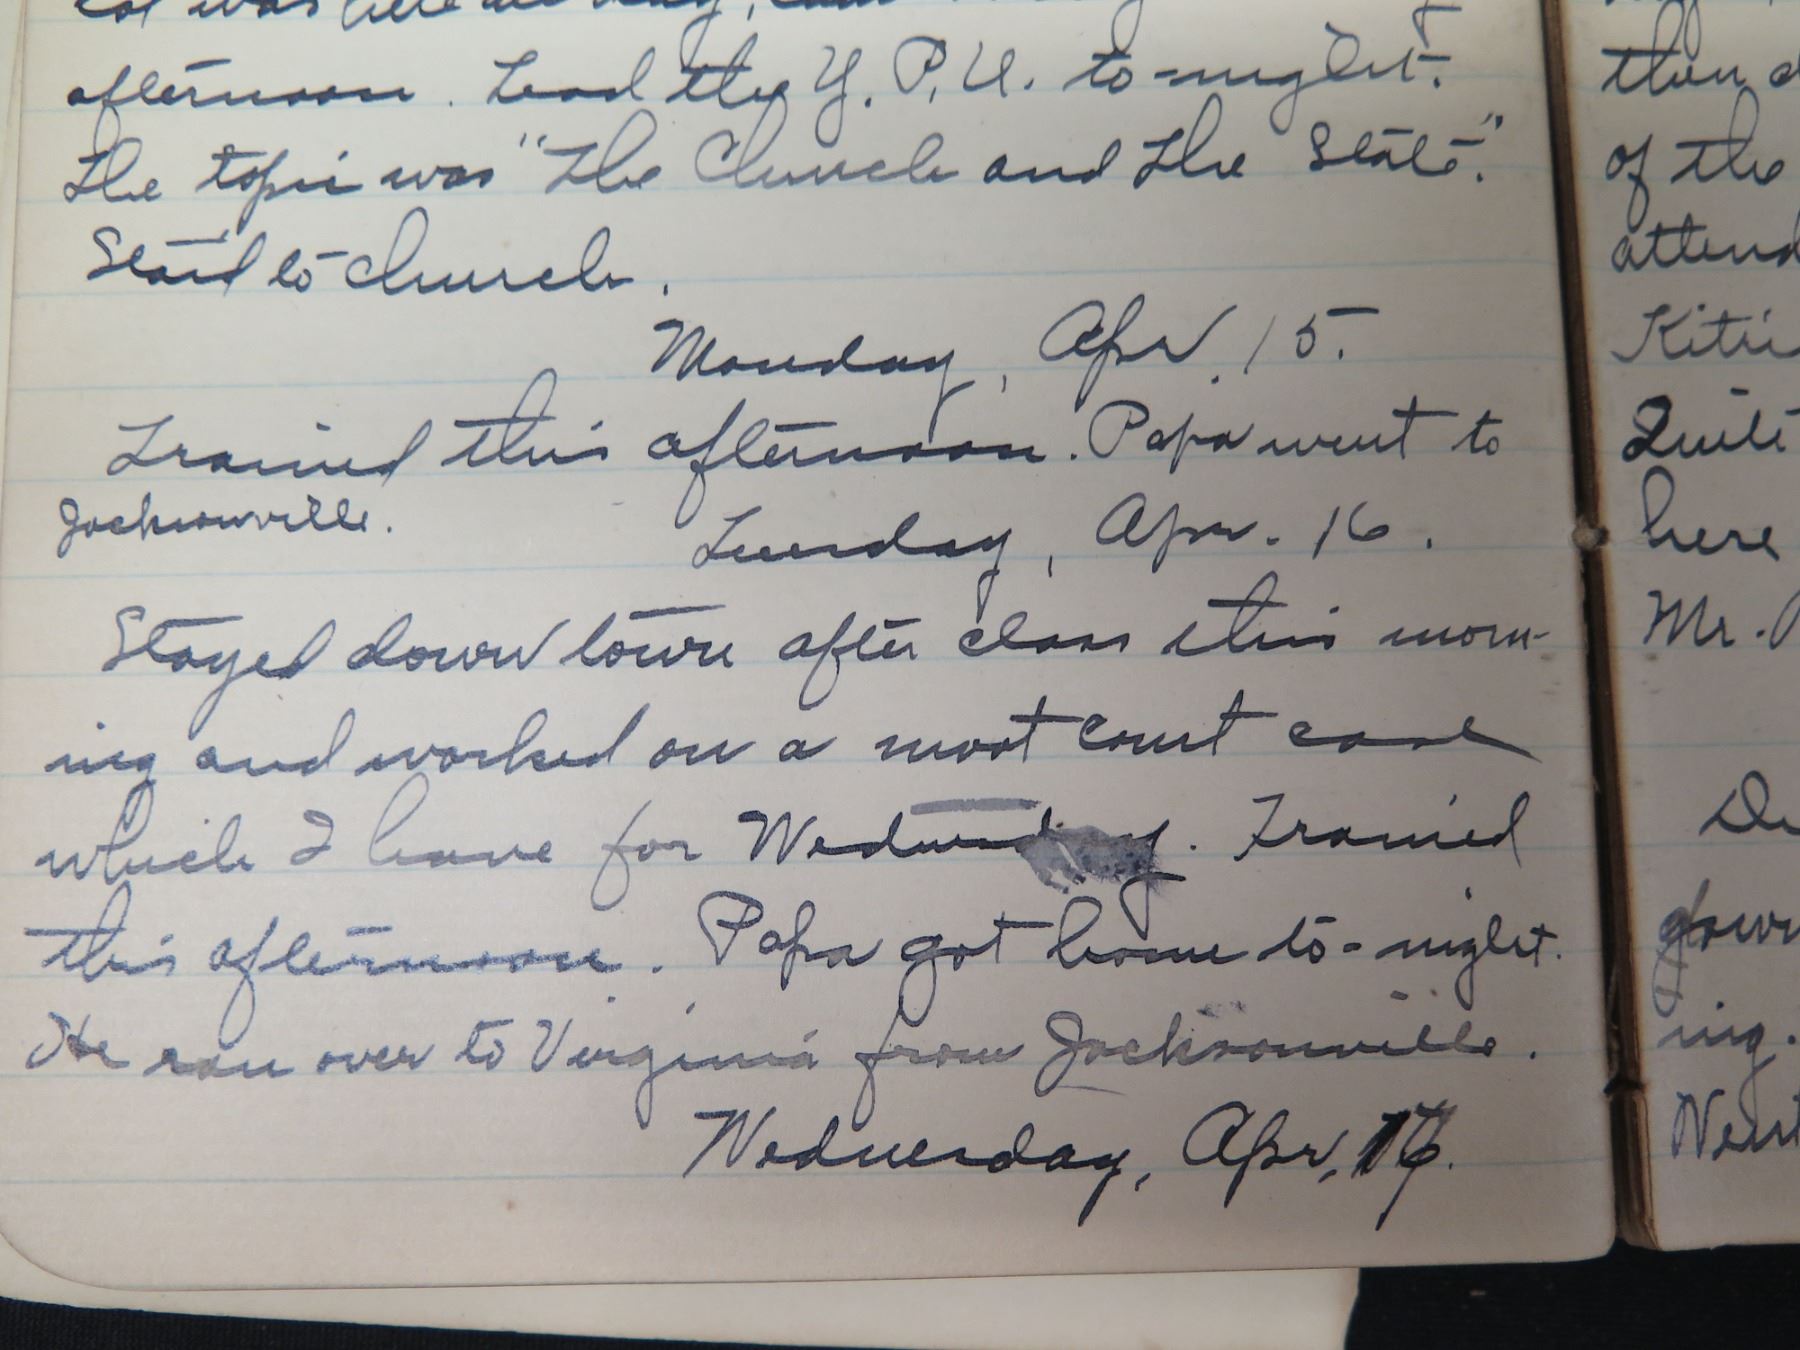 was here
afternoon. Lead the Y. P. U. to-night.
The topic was "The Church and the State."
Staid to church.
Monday, Apr. 15.
Trained this afternoon. Papa went to
Jacksonville.
Tuesday, Apr. 16.
Stayed down town after class this morn-
ing and worked on a moot court case
which I have for Wednesday. Trained
this afternoon. Papa got home to-night.
He ran over to Virginia from Jacksonville.
Wednesday, Apr. 17.
then
of the
attend
Quite
here
Mr.
ing.